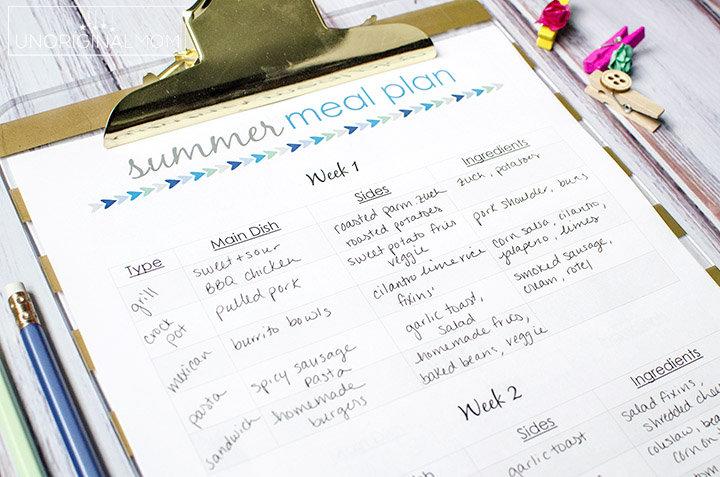 UNORIGINALMOM
summer meal plan
Week 1
Type Main Dish Sides Ingredients
grill sweet + sour BBQ chicken roasted parm zuch roasted potatoes zuch, potatoes
crock pot pulled pork sweet potato fries veggie pork shoulder, buns
mexican burrito bowls cilantro lime rice fixins' corn salsa, cilantro, jalapeno, limes
pasta spicy sausage pasta garlic toast, salad smoked sausage, cream, rotel
sandwich homemade burgers homemade fries, baked beans, veggie
Week 2
Dish Sides Ingredients
garlic toast salad fixins, shredded
coleslaw,
corn on